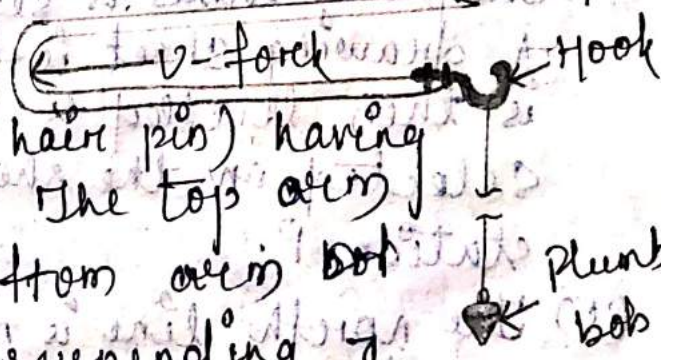 U-fork
Hook
hair pin) having
The top arm
ttom arm
Plumb
bob